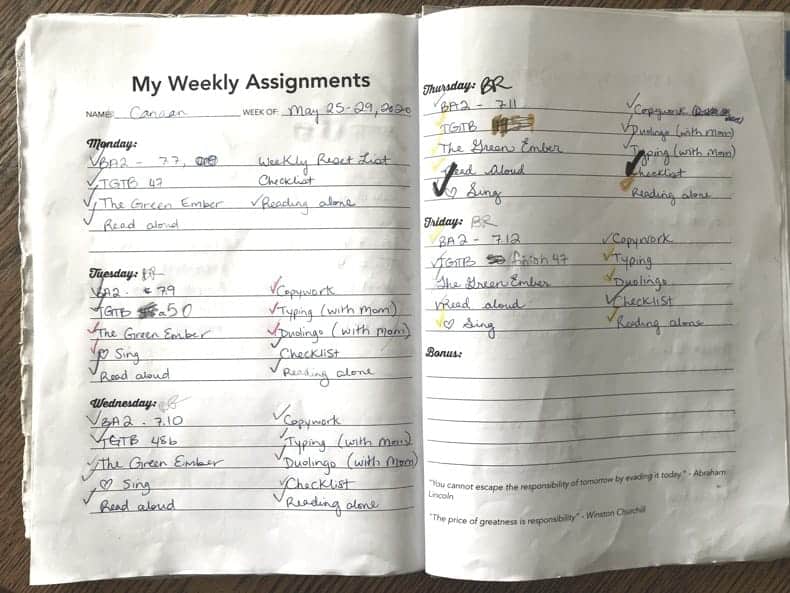 My Weekly Assignments
NAME: Canaan WEEK OF: May 25-29, 2020
Monday:
BA2 - 7.7, Weekly Reset List
TGTB 47 Checklist
The Green Ember Reading alone
Read aloud
Tuesday: BR
BA2 - 7.9 Copywork
TGTB a50 Typing (with Mom)
The Green Ember Duolingo (with Mom)
♡ Sing Checklist
Read aloud Reading alone
Wednesday: BR
BA2 - 7.10 Copywork
TGTB 48b Typing (with Mom)
The Green Ember Duolingo (with Mom)
♡ Sing Checklist
Read aloud Reading alone
Thursday: BR
BA2 - 7.11 Copywork
TGTB Duolingo (with Mom)
The Green Ember Typing (with Mom)
Read Aloud Checklist
♡ Sing Reading alone
Friday: BR
BA2 - 7.12 Copywork
TGTB finish 47 Typing
The Green Ember Duolingo
Read aloud Checklist
♡ Sing Reading alone
Bonus:
"You cannot escape the responsibility of tomorrow by evading it today." - Abraham
Lincoln
"The price of greatness is responsibility" - Winston Churchill